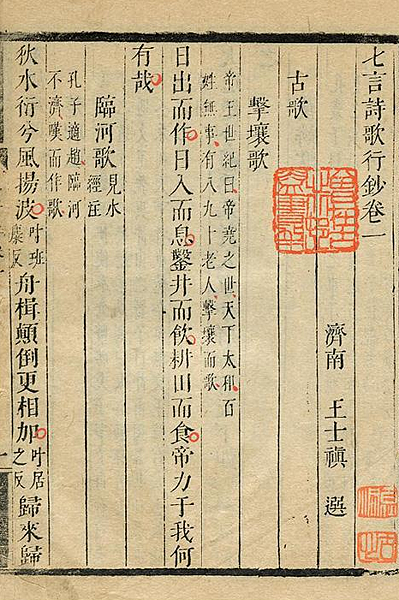 七言詩歌行鈔卷一
濟南 王士禛 選
古歌
擊壤歌
帝王世紀曰帝堯之世天下太和百
姓無事有八九十老人擊壤而歌
日出而作日入而息鑿井而飲耕田而食帝力于我何
有哉
臨河歌 見水經注
孔子適趙臨河
不濟嘆而作歌
秋水衍兮風揚波叶班糜反舟楫顛倒更相加叶居之反歸來歸